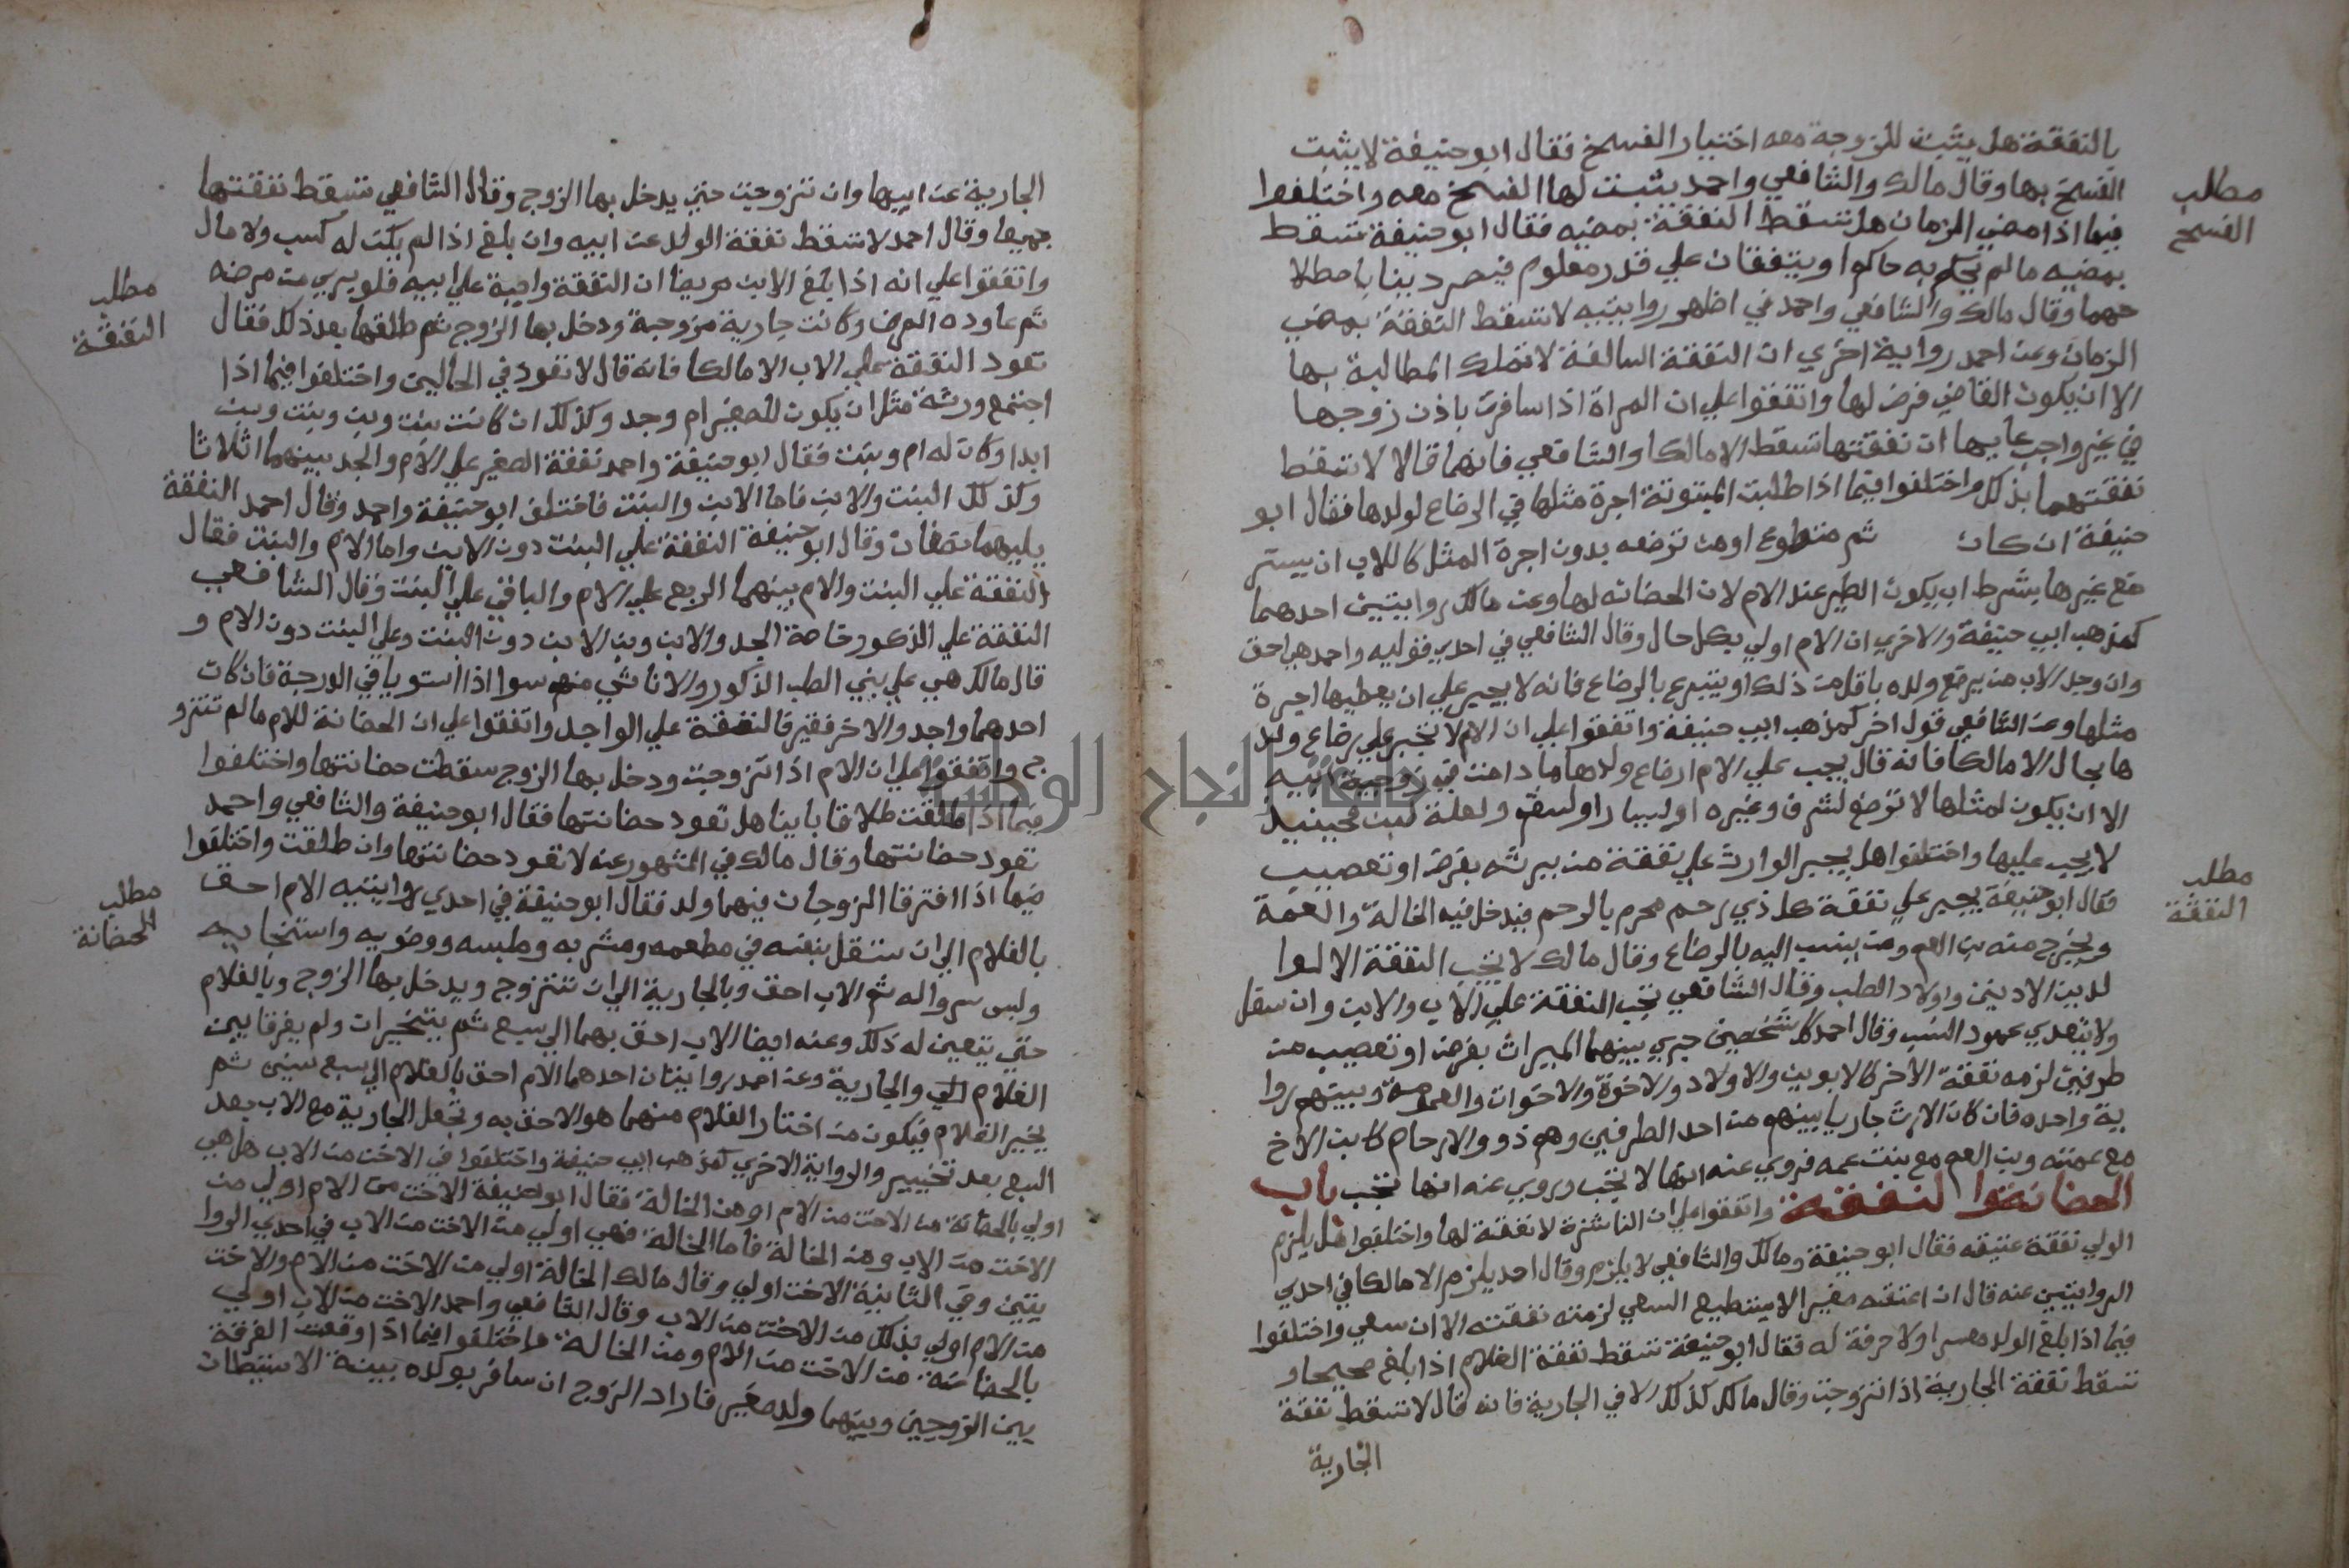 بالنفقة هل يثبت للزوجة معه اختيار الفسخ فقال ابو حنيفة لا يثبت
مطلب الفسخ
الفسخ بها وقال مالك والشافعي واحمد يثبت لها الفسخ معه واختلفوا
فيما اذا مضي الزمان هل تسقط النفقة بمضيه فقال ابو حنيفة تسقط
بمضيه ما لم يحكم به حاكم او يتفقان علي قدر معلوم فيصر دينا باصطلا
حهما وقال مالك والشافعي واحمد في اظهر روايتيه لا تسقط النفقة بمضي
الزمان وعن احمد رواية اخري ان النفقة السالفة لا تملك المطالبة بها
الا ان يكون القاضي فرض لها واتفقوا علي ان المراة اذا سافرت باذن زوجها
في غير واجب عليها ان نفقتها تسقط الا مالكا والشافعي فانهما قالا لا تسقط
نفقتهما بذلك واختلفوا فيما اذا طلبت المبتوتة اجرة مثلها في الرضاع لولدها فقال ابو
حنيفة ان كان ثم متطوع او من ترضعه بدون اجرة المثل كا للاب ان يستر
ضع غيرها بشرط اب يكون الظير عند الام لان الحضانه لها وعن مالك روايتين احدهما
كمذهب ابي حنيفة والاخري ان الام اولي بكل حال وقال الشافعي في احدي قوليه واحمد هي احق
وان وجد الاب من يرضع ولده باقل من ذلك او يتبرع بالرضاع فانه لا يجبر علي ان يعطيها اجرة
مثلها وعن الشافعي قول اخر كمذهب ابي حنيفة واتفقوا علي ان الام لا تجبر علي رضاع ولد
ها بحال الا مالكا فانه قال يجب علي الام ارضاع ولدها ما دامت في زوجية ابيه
الا ان يكون لمثلها لا ترضع لشرف وغيره او ليسار او لسقم ولعلة فحينيذ
لا يجب عليها واختلفوا هل يجبر الوارث علي نفقة من يرثه بفرض او تعصيب
مطلب النفقة
فقال ابو حنيفة يجبر علي نفقة كل ذي رحم محرم بالرحم فيدخل فيه الخالة والعمة
ويخرج منه بن العم ومن ينسب اليه بالرضاع وقال مالك لا تجب النفقة الا للوا
لدين الادنين واولاد الصلب وقال الشافعي تجب النفقة علي الاب والابن وان سفل
ولا يتعدي عمود النسب وقال احمد كل شخصين جري بينهما الميراث بفرض او تعصيب من
طرفين لزمه نفقة الاخر كالابوين والاولاد والاخوة والاخوات والعمومة وبينهم روا
ية واحده فان كان الارث جاريا بينهم من احد الطرفين وهم ذوو الارحام كابن الاخ
مع عمته وبن العم مع بنت عمه فروي عنه انها لا تجب وروي عنه انها تجب باب
الحضانة والنفقة واتفقوا علي ان الناشزة لا نفقة لها واختلفوا هل يلزم
الولي نفقة عتيقه فقال ابو حنيفة ومالك والشافعي لا يلزم وقال احمد يلزم الا مالكا في احدي
الروايتين عنه قال ان اعتقه صغيرا لا يستطيع السعي لزمته نفقته الا ان سعي واختلفوا
فيما اذا بلغ الولد معسرا ولا حرفة له فقال ابو حنيفة تسقط نفقة الغلام اذا بلغ صحيحا و
تسقط نفقة الجارية اذا تزوجت وقال مالك كذلك الا في الجارية فانه قال لا تسقط نفقة
الجارية
الجارية عن ابيها وان تزوجت حتي يدخل بها الزوج وقال الشافعي تسقط نفقتها
جميعا وقال احمد لا تسقط نفقة الولد عن ابيه وان بلغ اذا لم يكن له كسب ولا مال
مطلب النفقة
واتفقوا علي انه اذا بلغ الابن مريضا ان النفقة واجبة علي ابيه فلو بري من مرضه
ثم عاوده المرض او كانت جارية مزوجة ودخل بها الزوج ثم طلقها بعد ذلك فقال
تعود النفقة علي الاب الا مالكا فانه قال لا تعود في الحالين واختلفوا فيما اذا
اجتمع ورثة مثل ان يكون للصغير ام وجد وكذلك ان كانت بنت وبن وبنت وبن
ابدا وكان له ام وبنت فقال ابو حنيفة واحمد نفقة الصغير علي الام والجد بينهما اثلاثا
وكذلك البنت والابن فاما الابن والبنت فاختلف ابو حنيفة واحمد وقال احمد النفقة
يليهما نصفان وقال ابو حنيفة النفقة علي البنت دون الابن واما الام والبنت فقال
النفقة علي البنت والام بينهما الربع علي الام والباقي علي البنت وقال الشافعي
النفقة علي الذكور خاصة الجد والابن وبن الابن دون البنت وعلي البنت دون الام و
قال مالك هي علي بني الصلب الذكور والاناثي منهم سوا اذا استويا في الدرجة فان كان
احدهما واجد والاخر فقير فالنفقة علي الواجد واتفقوا علي ان الحضانة للام ما لم تتزو
ج واتفقوا علي ان الام اذا تزوجت ودخل بها الزوج سقطت حضانتها واختلفوا
فيما اذا طلقت طلاقا باينا هل تعود حضانتها فقال ابو حنيفة والشافعي واحمد
تعود حضانتها وقال مالك في المشهور عنه لا تعود حضانتها وان طلقت واختلفوا
مطلب الحضانة
فيما اذا افترقا الزوجان بينهما ولد فقال ابو حنيفة في احدي روايتيه الام احق
بالغلام الي ان ستقل بنفسه في مطعمه ومشربه وملبسه ووضويه واستنجايه
ولبس سرواله ثم الاب احق وبالجارية الي ان تتزوج ويدخل بها الزوج وبالغلام
حتي يتعين له ذلك وعنه ايضا الاب احق بهما الي سبع ثم يتخيران ولم يفرقا بين
الغلام والجارية وعن احمد روايتان احدهما الام احق بالغلام الي سبع سنين ثم
يخير الغلام فيكون من اختار الغلام منهما هو الاحق به وتجعل الجارية مع الاب بعد
السبع بعد تخيير والرواية الاخري كمذهب ابي حنيفة واختلفوا في الاخت من الاب هل هي
اولي بالحضانة من الاخت من الام او من الخالة فقال ابو حنيفة الاخت من الام اولي من
الاخت من الاب ومن الخالة فاما الخالة فهي اولي من الاخت من الاب في احدي الروا
يتين وفي الثانية الاخت اولي وقال مالك الخالة اولي من الاخت من الام والاخت
من الام اولي بذلك من الاخت من الاب وقال الشافعي واحمد الاخت من الاب اولي
بالحضانة من الاخت من الام ومن الخالة واختلفوا فيما اذا وقعت الفرقة
بين الزوجين وبينهما ولد صغير فاراد الزوج ان سافر بولده بينة الاستيطان
جامعة النجاح الوطنية